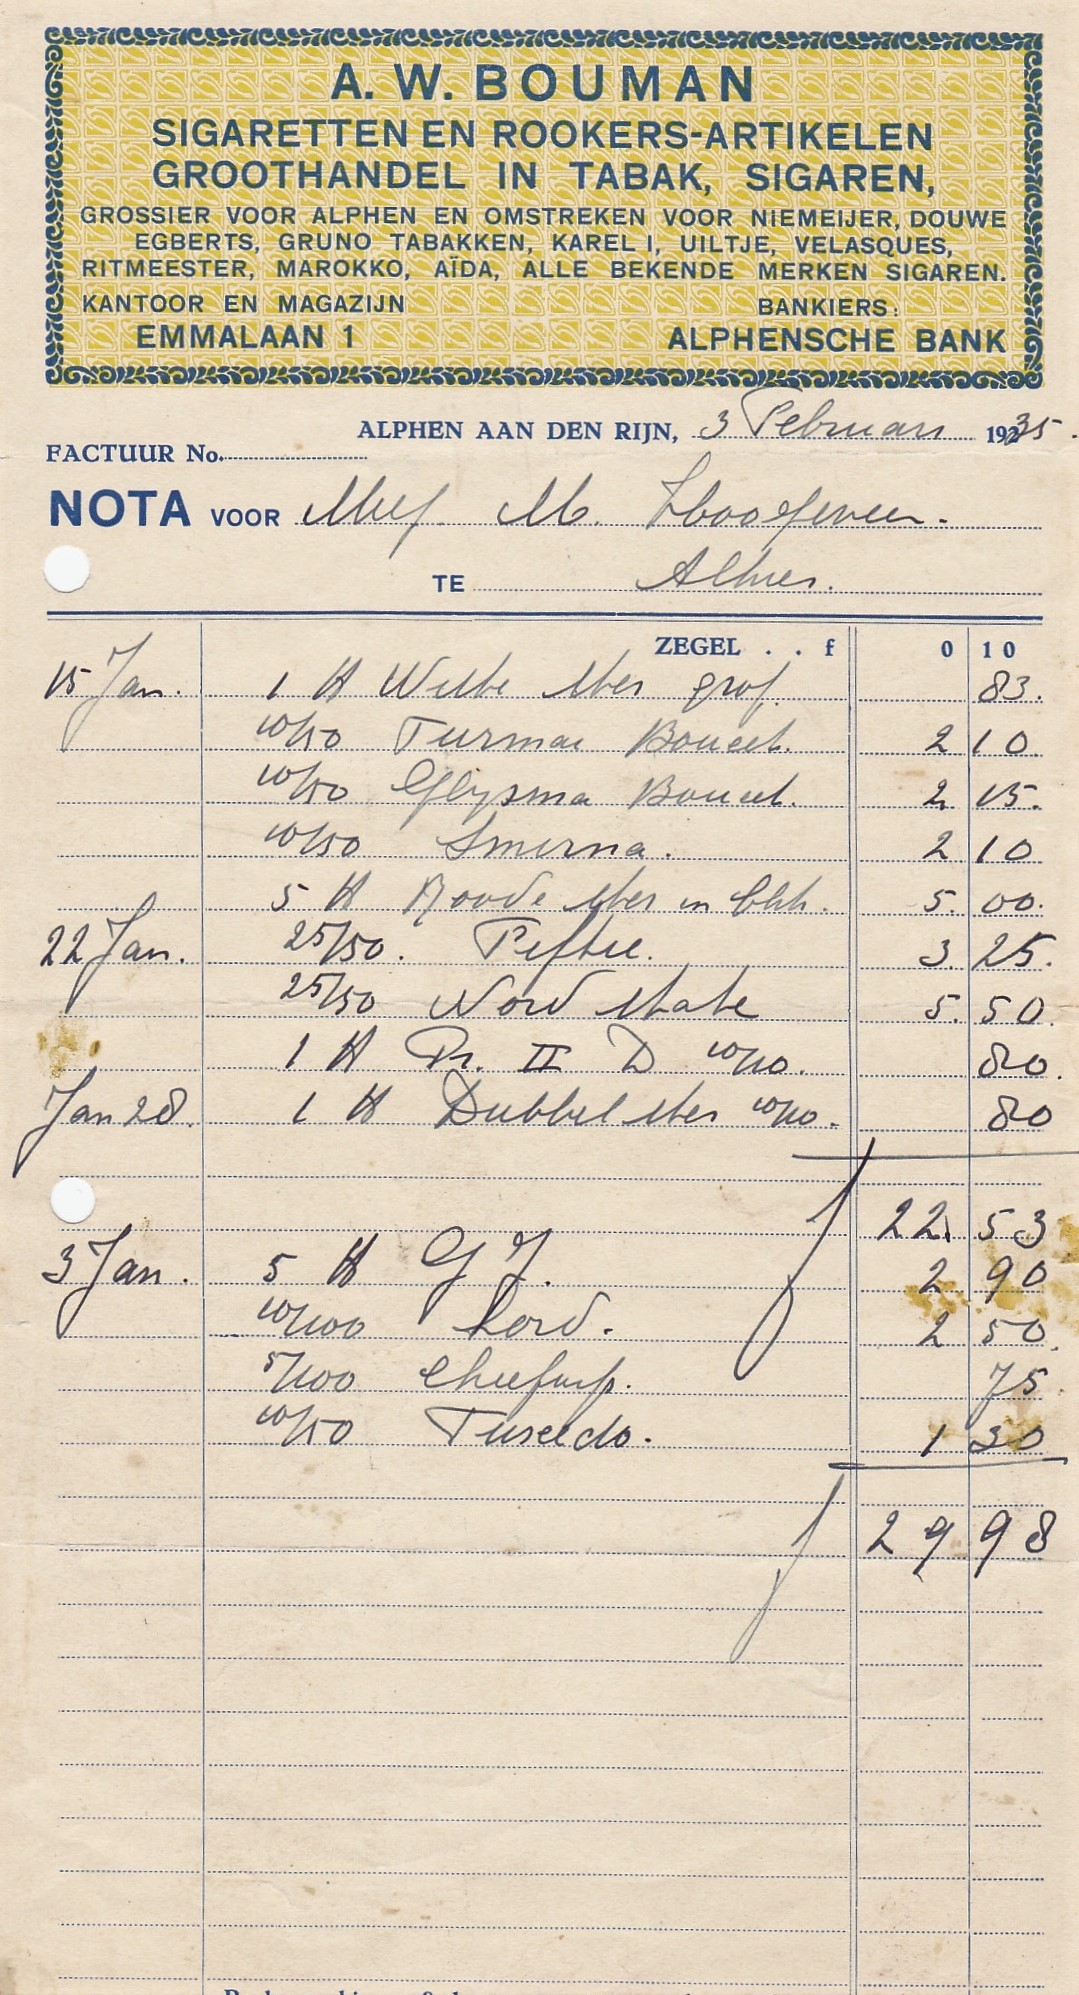 A. W. BOUMAN
SIGARETTEN EN ROOKERS-ARTIKELEN
GROOTHANDEL IN TABAK, SIGAREN,
GROSSIER VOOR ALPHEN EN OMSTREKEN VOOR NIEMEIJER, DOUWE
EGBERTS, GRUNO TABAKKEN, KAREL I, UILTJE, VELASQUES,
RITMEESTER, MAROKKO, AÏDA, ALLE BEKENDE MERKEN SIGAREN.
KANTOOR EN MAGAZIJN BANKIERS:
EMMALAAN 1 ALPHENSCHE BANK
ALPHEN AAN DEN RIJN, 3 Februari 1935.
FACTUUR No.
NOTA VOOR Mej. M. Hoogeveen.
TE Alhier.
ZEGEL . . f 0 10
15 Jan. 1 H Witte Ster grof. 83.
10/50 Turmac 2 10
10/50 2 15.
10/50 Smirna. 2 10
5 H Roode Ster in 5. 00.
22 Jan. 25/50. 3. 25.
25/50 Nord State 5. 50.
1 H Pr. II D 10/10. 80.
Jan 28. 1 H Dubbel Ster 10/10. 80
f 22. 53
3 Jan. 5 H G J. 2 90
10/100 Lord. 2 50.
5/100 75.
10/50 1 30
f 29 98